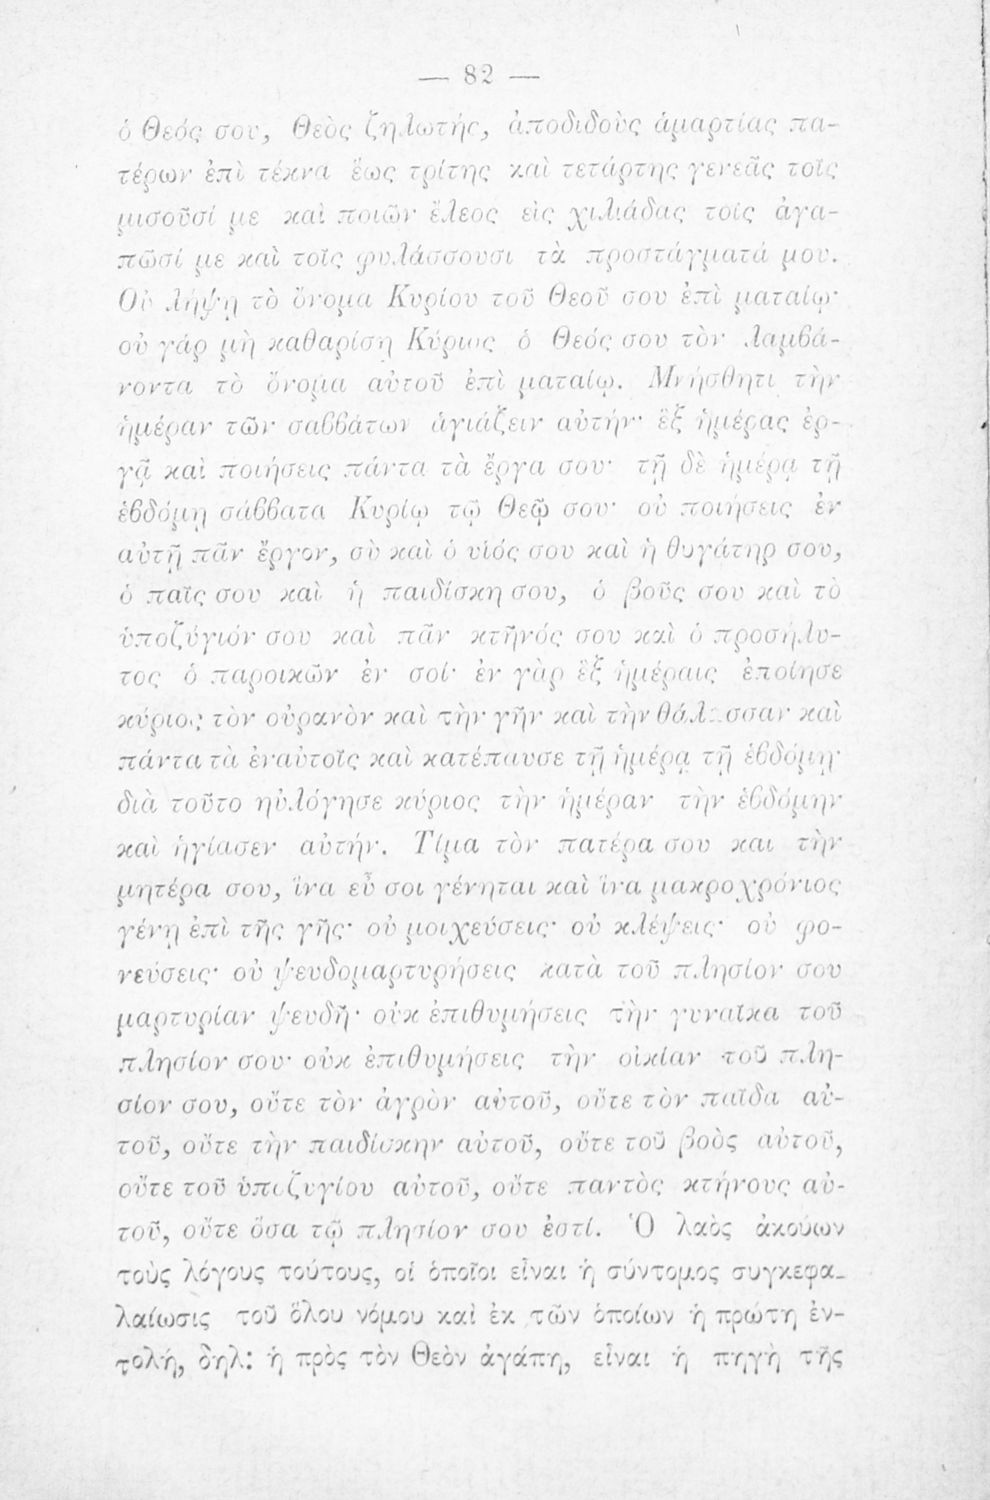 — 82 —
ὁ Θεός σου, Θεὸς ζηλωτής, ἀποδιδοὺς ἁμαρτίας πα-
τέρων ἐπὶ τέκνα ἕως τρίτης καὶ τετάρτης γενεᾶς τοῖς
μισοῦσί με καὶ ποιῶν ἔλεος εἰς χιλιάδας τοῖς ἀγα-
πῶσί με καὶ τοῖς φυλάσσουσι τὰ προστάγματά μου.
Οὐ λήψῃ τὸ ὄνομα Κυρίου τοῦ Θεοῦ σου ἐπὶ ματαίῳ·
οὐ γάρ μὴ καθαρίσῃ Κύριος ὁ Θεός σου τὸν λαμβά-
νοντα τὸ ὄνομα αὐτοῦ ἐπὶ ματαίῳ. Μνήσθητι τὴν
ἡμέραν τῶν σαββάτων ἁγιάζειν αὐτήν· ἓξ ἡμέρας ἐρ-
γᾷ καὶ ποιήσεις πάντα τὰ ἔργα σου· τῇ δὲ ἡμέρᾳ τῇ
ἑβδόμῃ σάββατα Κυρίῳ τῷ Θεῷ σου· οὐ ποιήσεις ἐν
αὐτῇ πᾶν ἔργον, σὺ καὶ ὁ υἱός σου καὶ ἡ θυγάτηρ σου,
ὁ παῖς σου καὶ ἡ παιδίσκη σου, ὁ βοῦς σου καὶ τὸ
ὑποζύγιόν σου καὶ πᾶν κτῆνός σου καὶ ὁ προσήλυ-
τος ὁ παροικῶν ἐν σοί· ἐν γὰρ ἓξ ἡμέραις ἐποίησε
κύριος τὸν οὐρανὸν καὶ τὴν γῆν καὶ τὴν θάλασσαν καὶ
πάντα τὰ ἐναὐτοῖς καὶ κατέπαυσε τῇ ἡμέρᾳ τῇ ἑβδόμῃ·
διὰ τοῦτο ηὐλόγησε κύριος τὴν ἡμέραν τὴν ἑβδόμην
καὶ ἡγίασεν αὐτήν. Τίμα τὸν πατέρα σου και τὴν
μητέρα σου, ἵνα εὖ σοι γένηται καὶ ἵνα μακροχρόνιος
γένῃ ἐπὶ τῆς γῆς· οὐ μοιχεύσεις· οὐ κλέψεις· οὐ φο-
νεύσεις· οὐ ψευδομαρτυρήσεις κατὰ τοῦ πλησίον σου
μαρτυρίαν ψευδῆ· οὐκ ἐπιθυμήσεις τὴν γυναῖκα τοῦ
πλησίον σου· οὐκ ἐπιθυμήσεις τὴν οἰκίαν τοῦ πλη-
σίον σου, οὔτε τὸν ἀγρὸν αὐτοῦ, οὔτε τὸν παῖδα αὐ-
τοῦ, οὔτε τὴν παιδίσκην αὐτοῦ, οὔτε τοῦ βοὸς αὐτοῦ,
οὔτε τοῦ ὑποζυγίου αὐτοῦ, οὔτε παντὸς κτήνους αὐ-
τοῦ, οὔτε ὅσα τῷ πλησίον σου ἐστί. Ὁ λαὸς ἀκούων
τοὺς λόγους τούτους, οἱ ὁποῖοι εἶναι ἡ σύντομος συγκεφα-
λαίωσις τοῦ ὅλου νόμου καὶ ἐκ τῶν ὁποίων ἡ πρώτη ἐν-
τολή, δηλ: ἡ πρὸς τὸν Θεὸν ἀγάπη, εἶναι ἡ πηγὴ τῆς